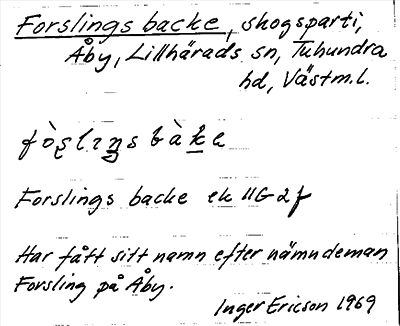 Forslings backe, skogsparti,
Åby, Lillhärads sn, Tuhundra
hd, Västm.l.
fòşlıŋs bàke
Forslings backe ek 11G2f
Har fått sitt namn efter nämndeman
Forsling på Åby.
Inger Ericson 1969